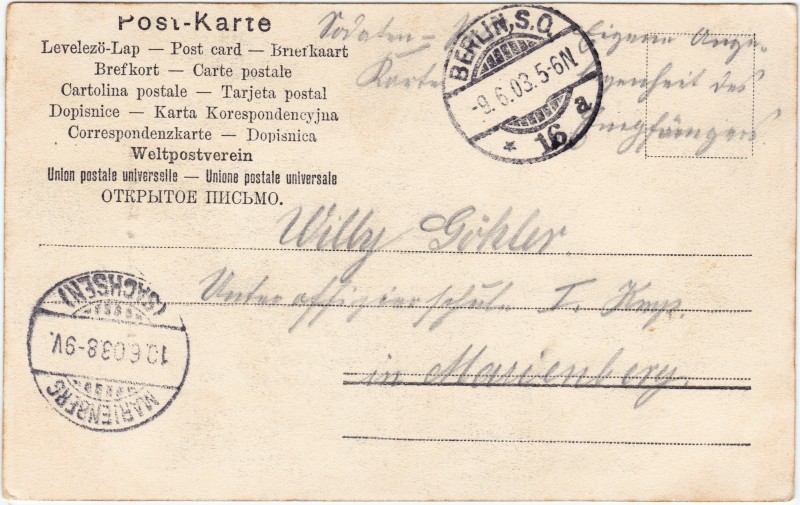 Post-Karte
Levelezö-Lap — Post card — Briefkaart
Brefkort — Carte postale
Cartolina postale — Tarjeta postal
Dopisnice — Karta Korespondencyjna
Correspondenzkarte — Dopisnica
Weltpostverein
Union postale universelle — Unione postale universale
ОТКРЫТОЕ ПИСЬМО.
Sodaten-
Karte
Eigene Ange-
des
BERLIN, S.O.
-9.6.03.5-6N.
* 16 a
Willy Göhler
Unteroffizierschule I. Komp.
in Marienberg.
MARIENBERG
10.6.03.8-9V.
(SACHSEN)